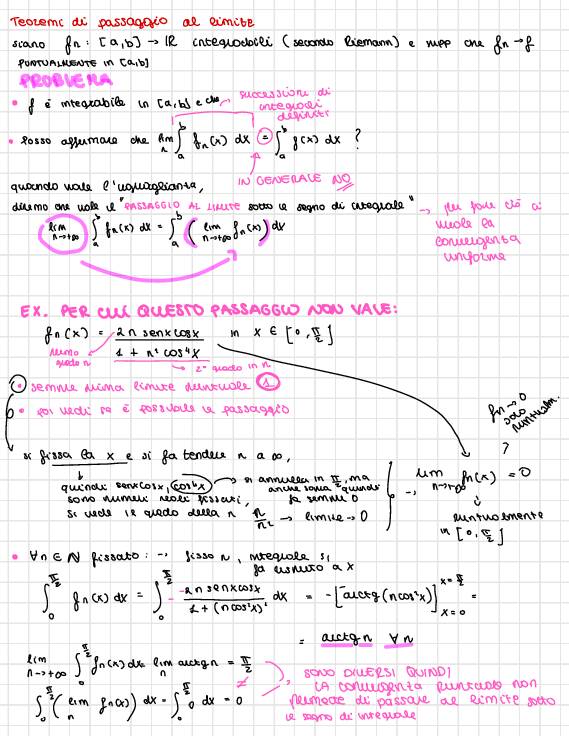 Teoremi di passaggio al limite
siano fn : [a,b] → IR integrabili (secondo Riemann) e supp che fn → f
PUNTUALMENTE in [a,b]
PROBLEMA
• f è integrabile in [a,b] e che
successione di integrali definiti
• Posso affermare che lim n ∫a^b fn(x) dx = ∫a^b f(x) dx ?
IN GENERALE NO
quando vale l'uguaglianza,
diremo che vale il "PASSAGGIO AL LIMITE sotto il segno di integrale"
lim n→+∞ ∫a^b fn(x) dx = ∫a^b ( lim n→+∞ fn(x) ) dx
→ per fare ciò ci vuole la convergenza uniforme
EX. PER CUI QUESTO PASSAGGIO NON VALE:
fn(x) = 2n senx cosx / 1 + n² cos⁴x in x ∈ [0, π/2]
primo grado n
2° grado in n
• sempre prima limite puntuale 1
• poi vedi se è possibile il passaggio
si fissa la x e si fa tendere n a ∞,
quindi senx cosx, cos⁴x → si annulla in π/2, ma anche sopra quindi fa sempre 0
sono numeri reali fissati,
si vede il grado della n n/n² → limite → 0
→ lim n→+∞ fn(x) = 0
puntualmente in [0, π/2]
fn → 0 solo puntualm.
?
• ∀n ∈ N fissato : → fisso n, integrale si fa rispetto a x
∫0^π/2 fn(x) dx = ∫0^π/2 - -2n senx cosx / 1 + (n cos²x)² dx = -[arctg(n cos²x)] x=π/2 x=0 =
= arctg n ∀n
lim n→+∞ ∫0^π/2 fn(x) dx = lim n arctg n = π/2
≠
∫0^π/2 ( lim n fn(x) ) dx = ∫0^π/2 0 dx = 0
SONO DIVERSI QUINDI
LA convergenza puntuale non
permette di passare al limite sotto
il segno di integrale